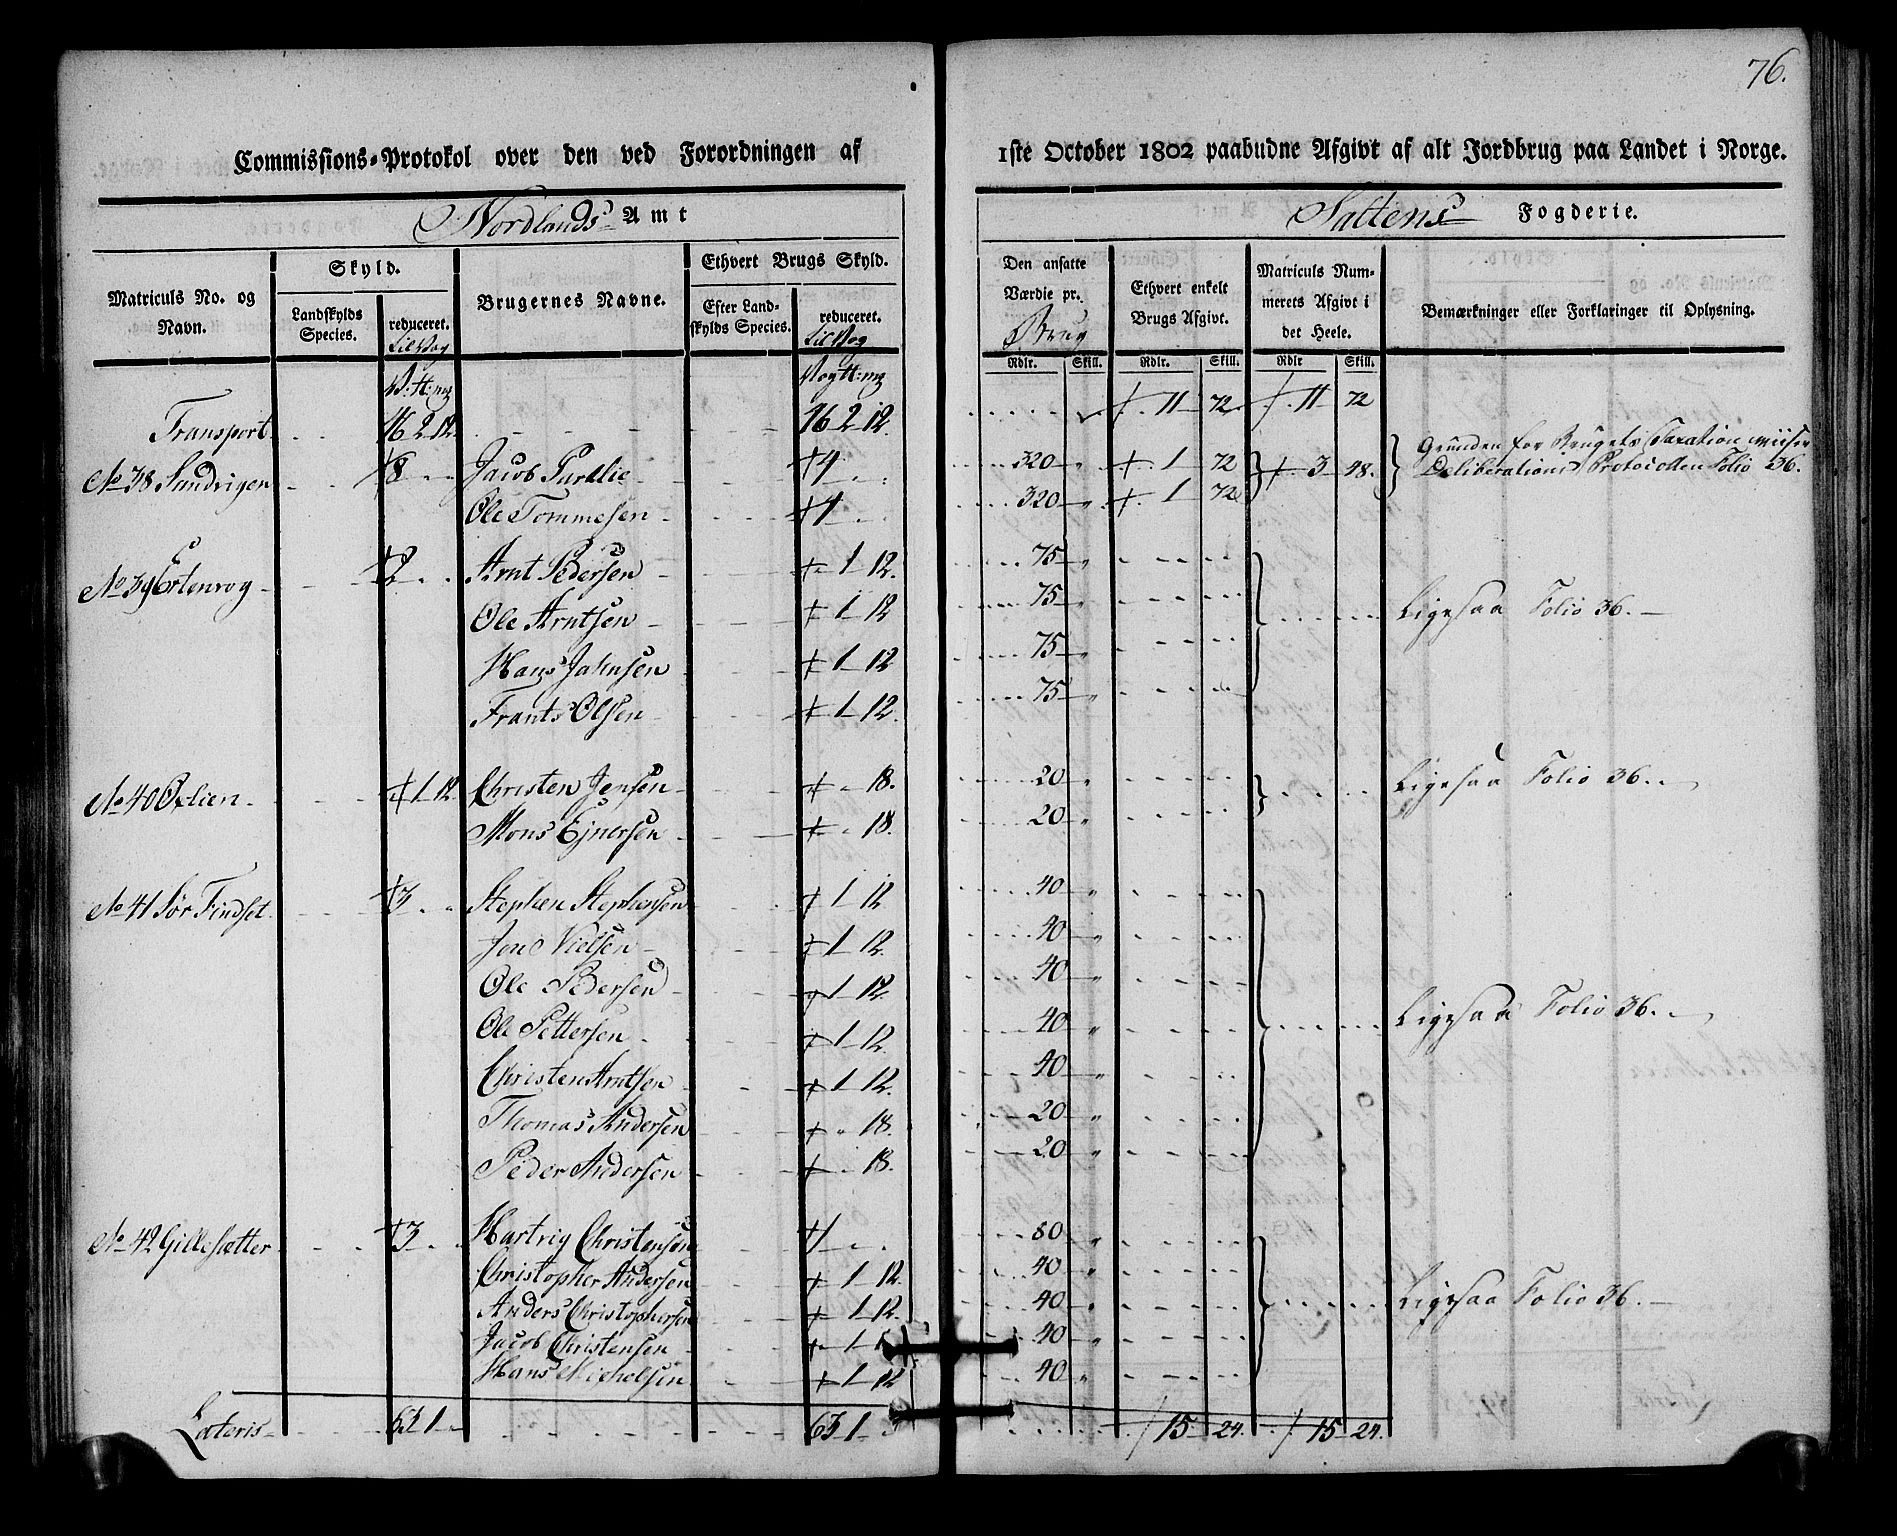 76.
Commissions-Protokol over den ved Forordningen af 1ste October 1802 paabudne Afgivt af alt Jordbrug paa Landet i Norge.
Nordlands Amt
Saltens Fogderie.
Matriculs No. og Navn.
Skyld.
Landskylds Species.
reduceret.
Brugernes Navne.
Ethvert Brugs Skyld.
Efter Landskylds Species.
reduceret.
Den ansatte Værdie pr. Brug
Rdlr. Skill.
Ethvert enkelt Brugs Afgivt.
Rdlr. Skill.
Matriculs Nummerets Afgivt i det Heele.
Rdlr Skill.
Bemærkninger eller Forklaringer til Oplysning.
Transport 16 2 12. 16 2 12. 11 72 11 72
No 38 Sundvigen 8 Jacob Parelie 4 320 1 72 3 48. Grunden for Brugets Taxation viiser
Deliberations Protocollen Folio 36.
Ole Tommesen 320 1 72
No 39 Ertenvog 2 Arnt Pedersen 1 12. 75
Ole Arntsen 1 12 75 Ligesaa Folio 36.
Hans Jahnsen 1 12 75
Frants Olsen 1 12. 75
No 40 Oxlien 1 12 Christen Jensen 18. 20 Ligesaa Folio 36.
Mons Ejnersen 18. 20
No 41 Sør Findset 3 Stephen Stephensen 1 12 40
Jon Nielsen 1 12. 40
Ole Pedersen 1 12. 40
Ole Pettersen 1 12. 40 Ligesaa Folio 36.
Christen Arntsen 1 12. 40
Thomas Andersen 18. 20
Peder Andersen 18. 20
No 42 Gillesætter 3 Hartvig Christensen 1 80
Christopher Andersen 1 12. 40
Anders Christophersen 1 12. 40 Ligesaa Folio 36.
Jacob Christensen 1 40
Hans Michelsen 1 12 40
Lateris 63 1 63 1 15 24. 15 24.